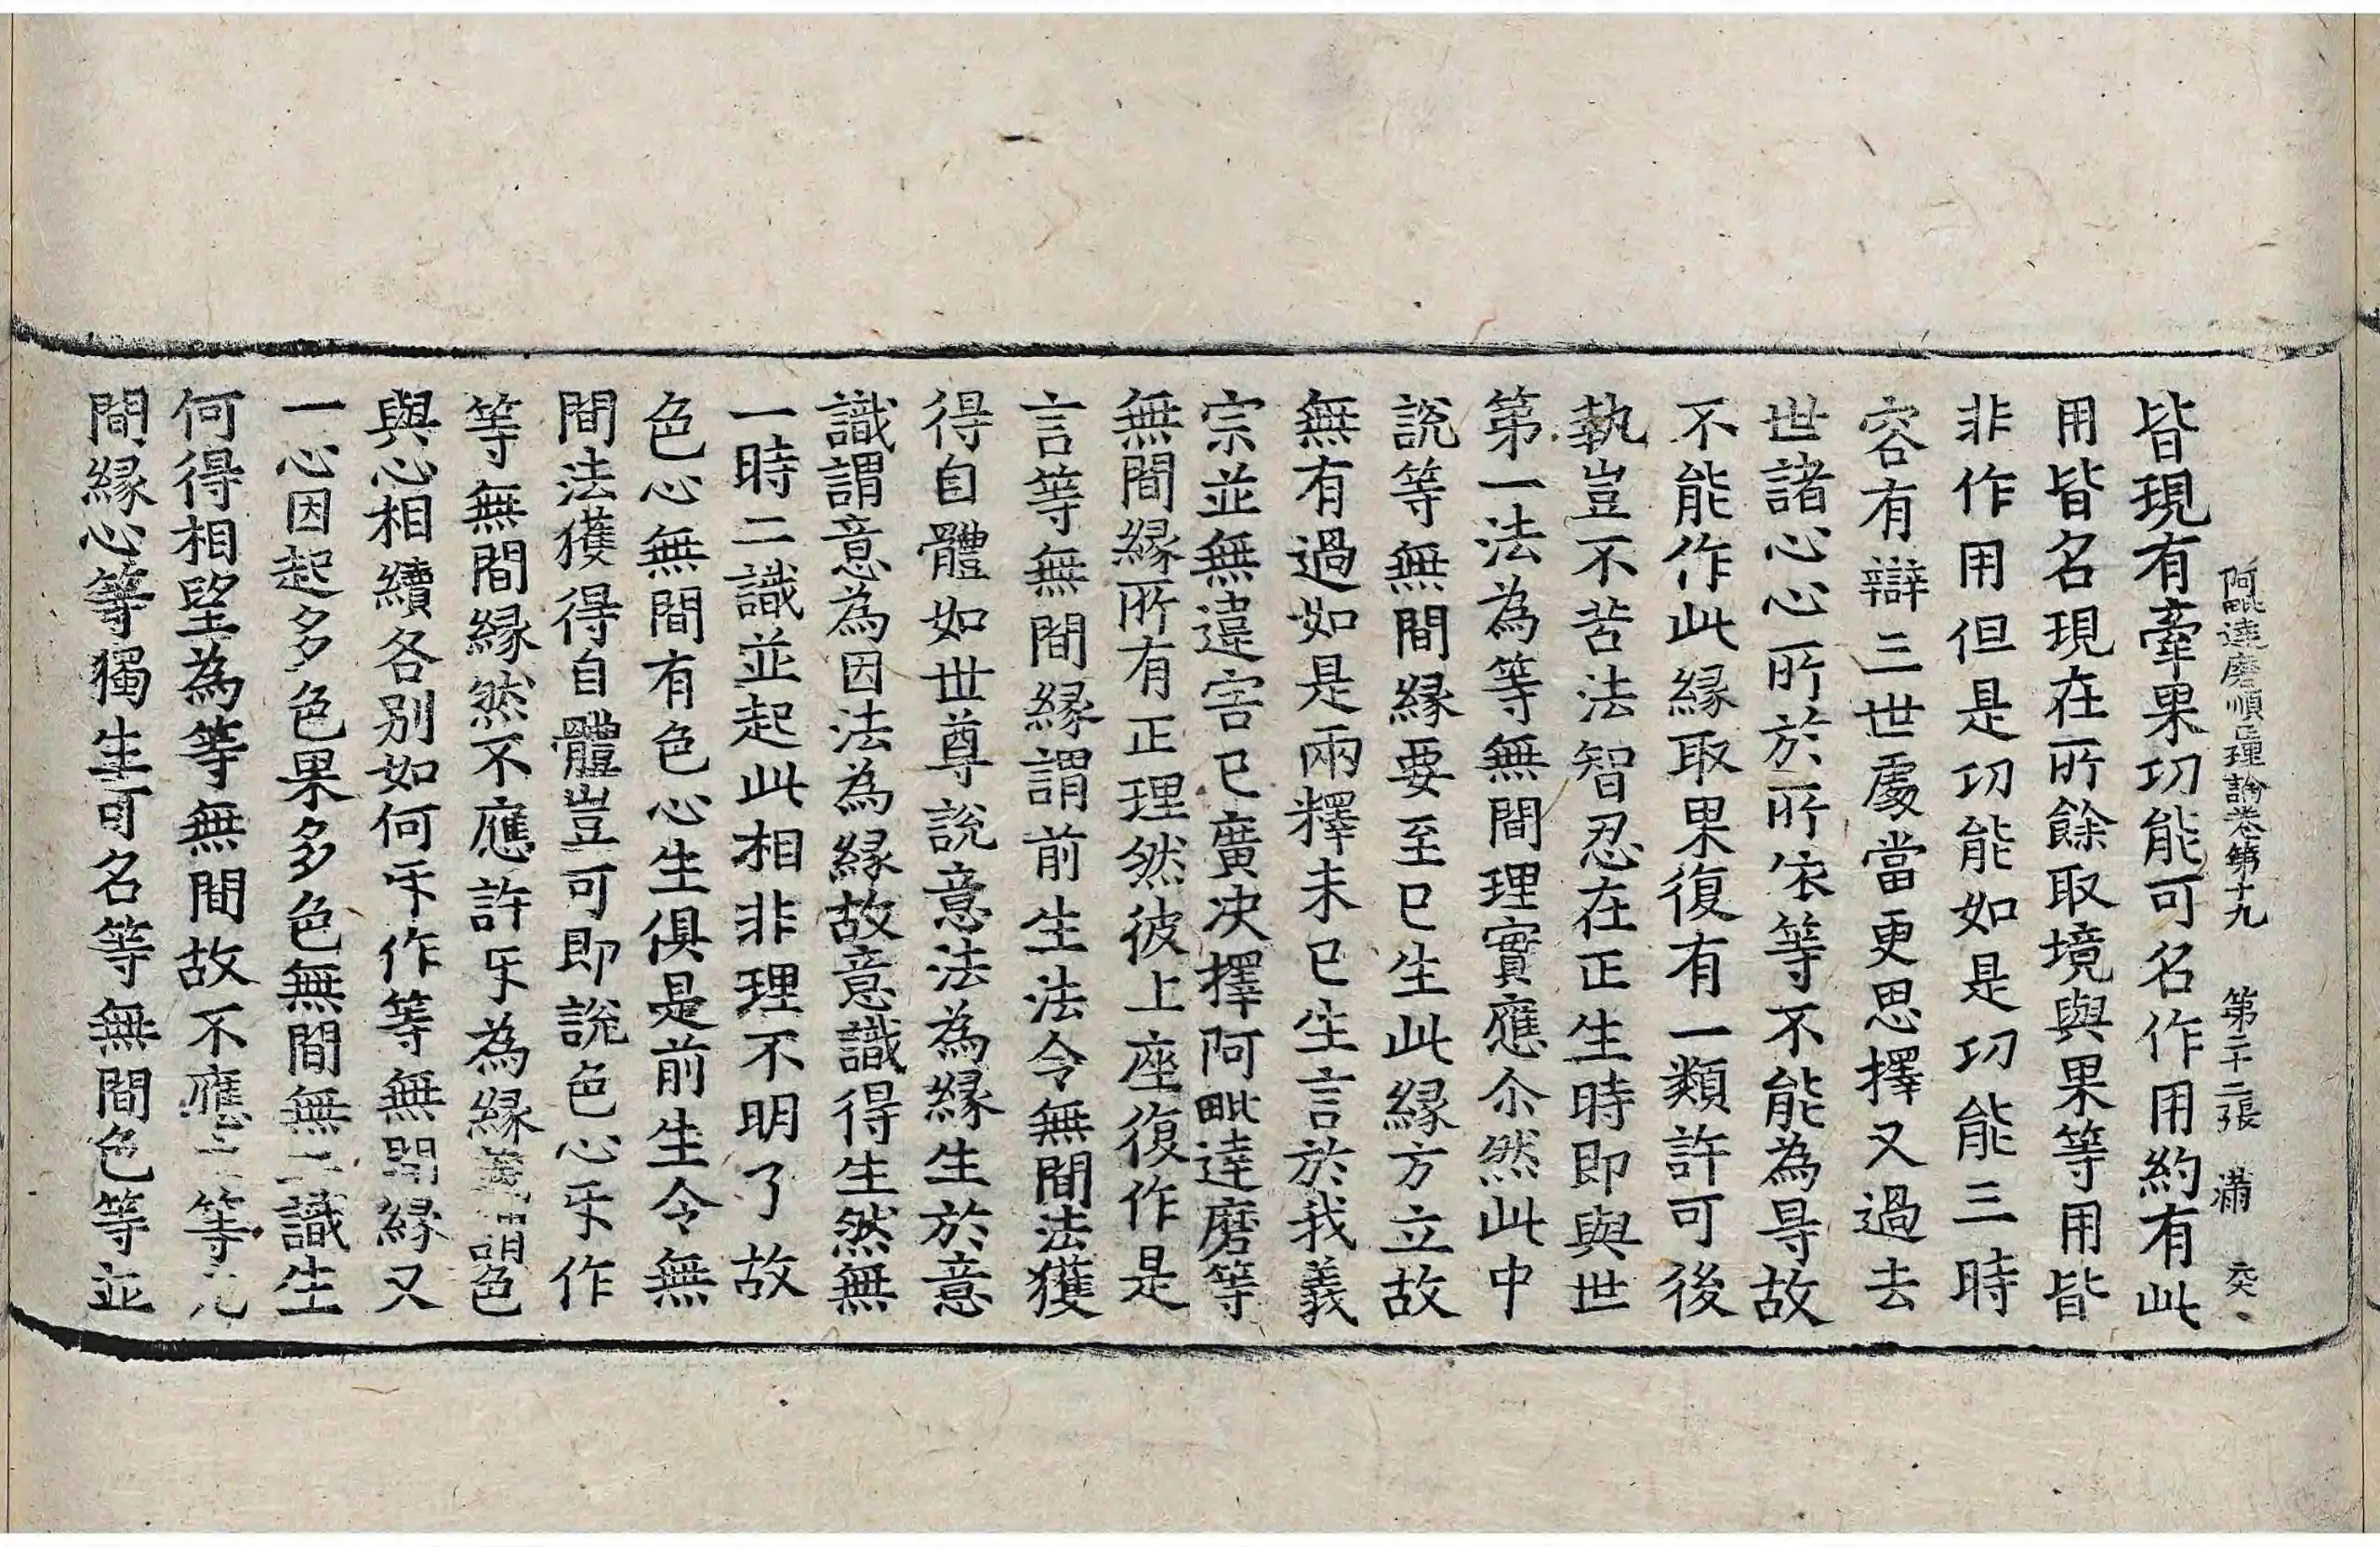 阿毗達磨順正理論卷第十九　第二十二張　滿
皆現有牽果功能可名作用約有此
用皆名現在所餘取境與果等用皆
非作用但是功能如是功能三時
容有辯三世處當更思擇又過去
世諸心心所於所依等不能為㝵故
不能作此緣取果復有一類許可後
執豈不苦法智忍在正生時即與世
第一法為等無間理實應尒然此中
說等無間緣要至已生此緣方立故
無有過如是兩釋未已生言於我義
宗並無違害已廣決擇阿毗達磨等
無間緣所有正理然彼上座復作是
言等無間緣謂前生法令無間法獲
得自體如世尊說意法為緣生於意
識謂意為因法為緣故意識得生然無
一時二識並起此相非理不明了故
色心無間有色心生俱是前生令無
間法獲得自體豈可即說色心㸦作
等無間緣然不應許㸦為緣色
與心相續各別如何㸦作等無間緣又
一心因起多色果多色無間無二識生
何得相望為等無間故不應等
間緣心等獨生可名等無間色等並